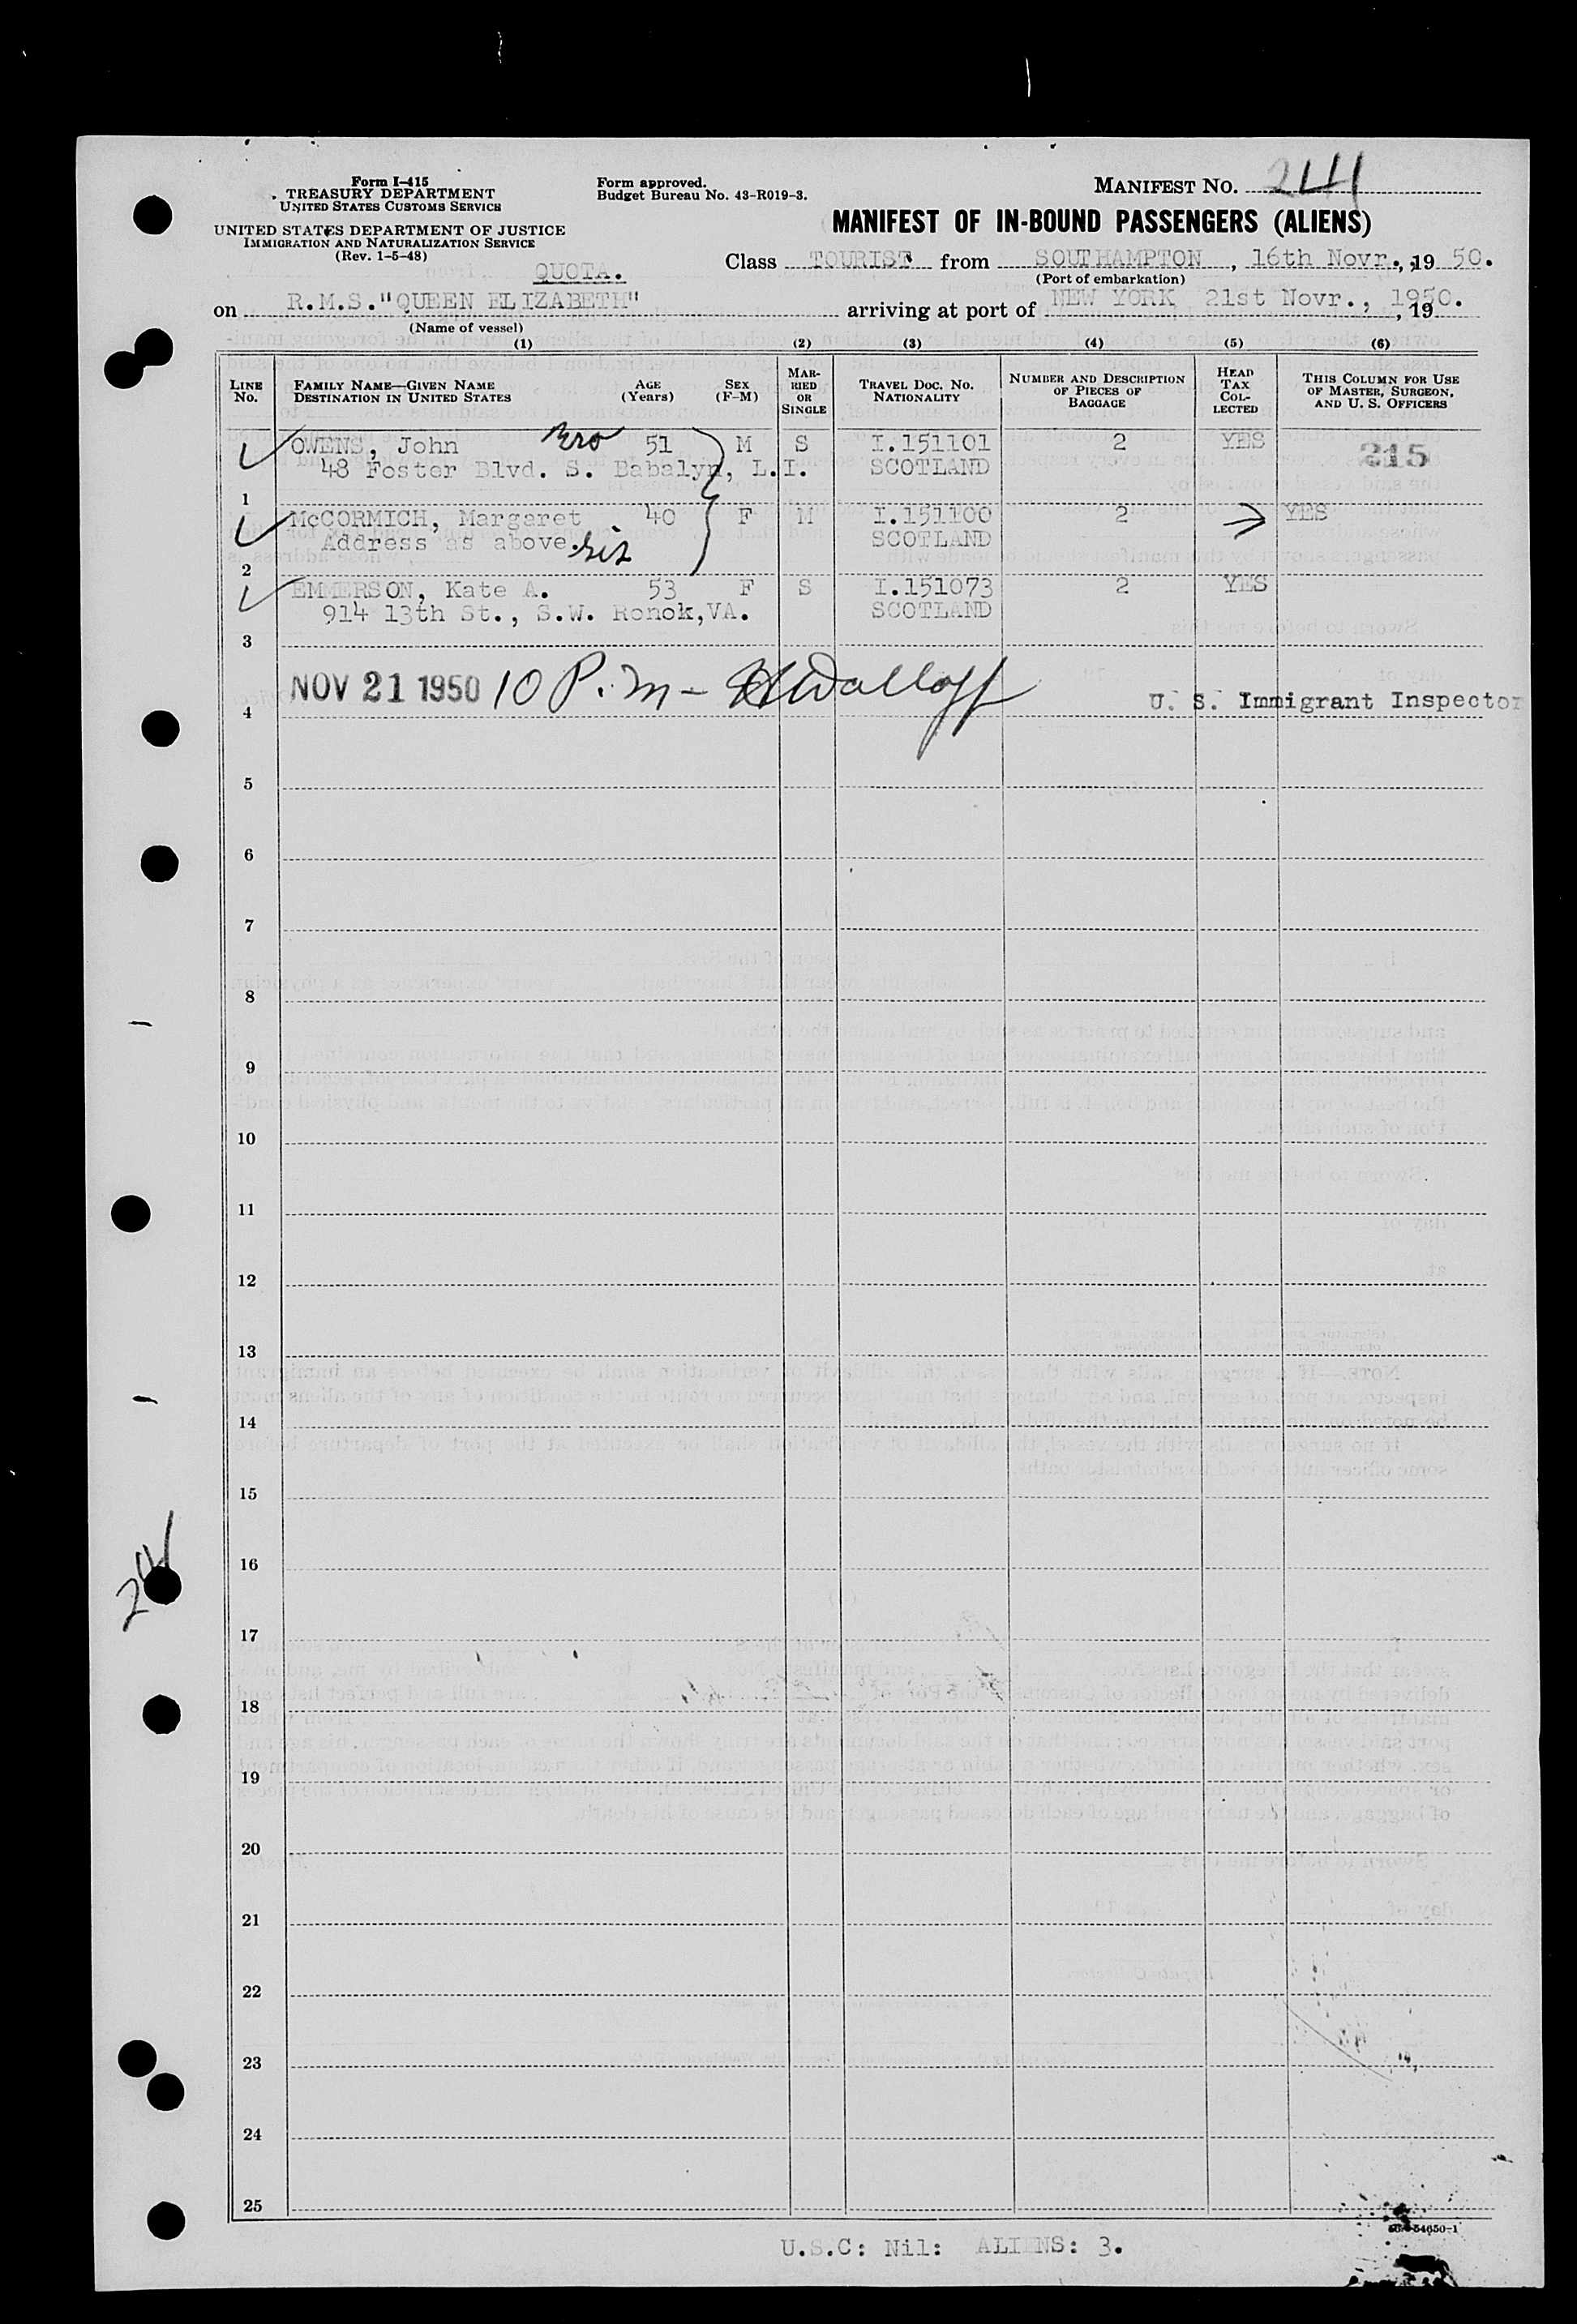 Form I-415
TREASURY DEPARTMENT
UNITED STATES CUSTOMS SERVICE
UNITED STATES DEPARTMENT OF JUSTICE
IMMIGRATION AND NATURALIZATION SERVICE
(Rev. 1-5-48)
Form approved.
Budget Bureau No. 43-R019-3.
MANIFEST NO. 241
MANIFEST OF IN-BOUND PASSENGERS (ALIENS)
QUOTA.
Class TOURIST from SOUTHAMPTON, 16th Novr., 19 50.
(Port of embarkation)
on R.M.S."QUEEN ELIZABETH" arriving at port of NEW YORK 21st Novr., 1950. , 19
(Name of vessel)
(1) (2) (3) (4) (5) (6)
LINE NO. FAMILY NAME—GIVEN NAME DESTINATION IN UNITED STATES AGE (Years) SEX (F-M) MARRIED OR SINGLE TRAVEL DOC. NO. NATIONALITY NUMBER AND DESCRIPTION OF PIECES OF BAGGAGE HEAD TAX COLLECTED THIS COLUMN FOR USE OF MASTER, SURGEON, AND U. S. OFFICERS
OWENS, John Bro 51 M S I.151101 2 YES 215
48 Foster Blvd. S. Babalyn, L.I. SCOTLAND
1
McCORMICH, Margaret 40 F M I.151100 2 YES
Address as above. Sis SCOTLAND
2
EMMERSON, Kate A. 53 F S I.151073 2 YES
914 13th St., S.W. Ronok,VA. SCOTLAND
3
NOV 21 1950 10 P.M - U. S. Immigrant Inspector
4
5
6
7
8
9
10
11
12
13
14
15
16
241
17
18
19
20
21
22
23
24
25
U.S.C: Nil: ALIENS: 3.